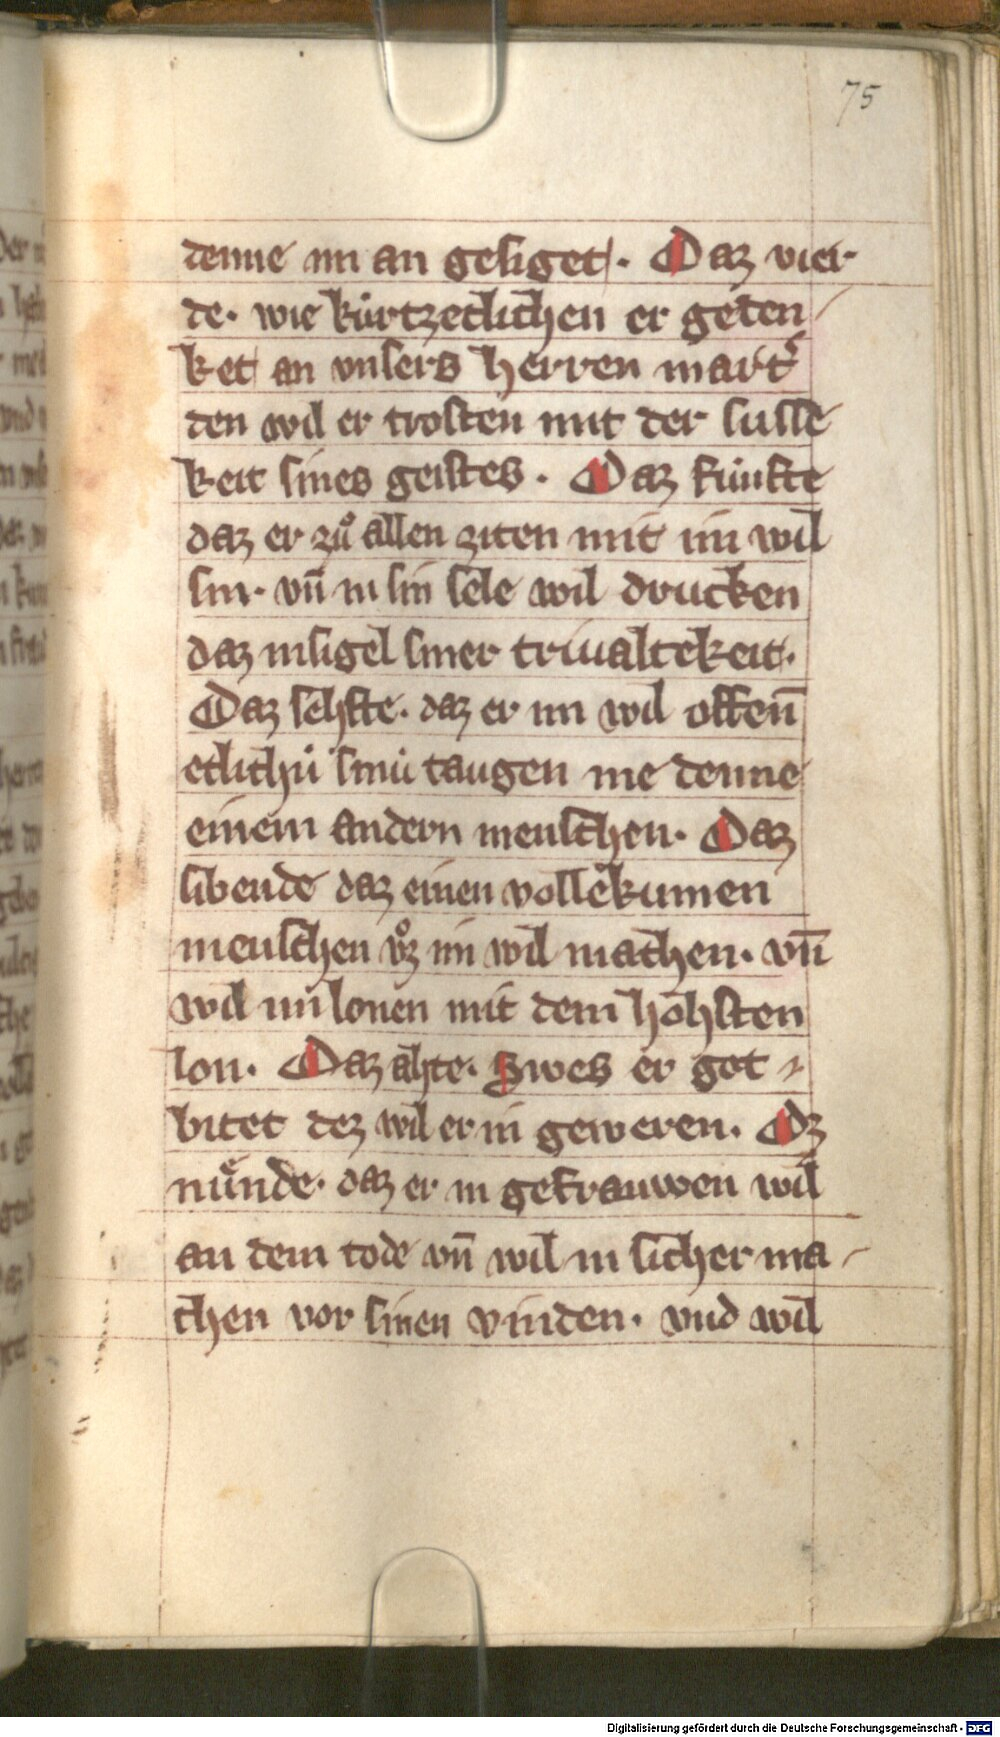 75
denne im an gesiget. Daz vier-
de. wie kürtzeclichen er geden-
ket an vnsers herren mart̾
den wil er trosten mit der susse
keit sines geistes. Daz fünfte
daz er zuͦ allen ziten mit im wil
sin. vn̄ in sin sele wil drucken
daz insigel siner triualtekeit.
Daz sehste. daz er im wil offen̄
etlichü sinü taugen me denne
einem andern menschen. Daz
sibende daz einen vollekumen
menschen vͦz im wil machen. vn̄
wil im lonen mit dem hohsten
lon. Daz ahte. Swes er got
bitet dez wil er in geweren. Dz
nuͤnde. daz er in gefrauwen wil
an dem tode vn̄ wil in sicher ma-
chen vor sinen vinden. vnd wil
Digitalisierung gefördert durch die Deutsche Forschungsgemeinschaft - DFG